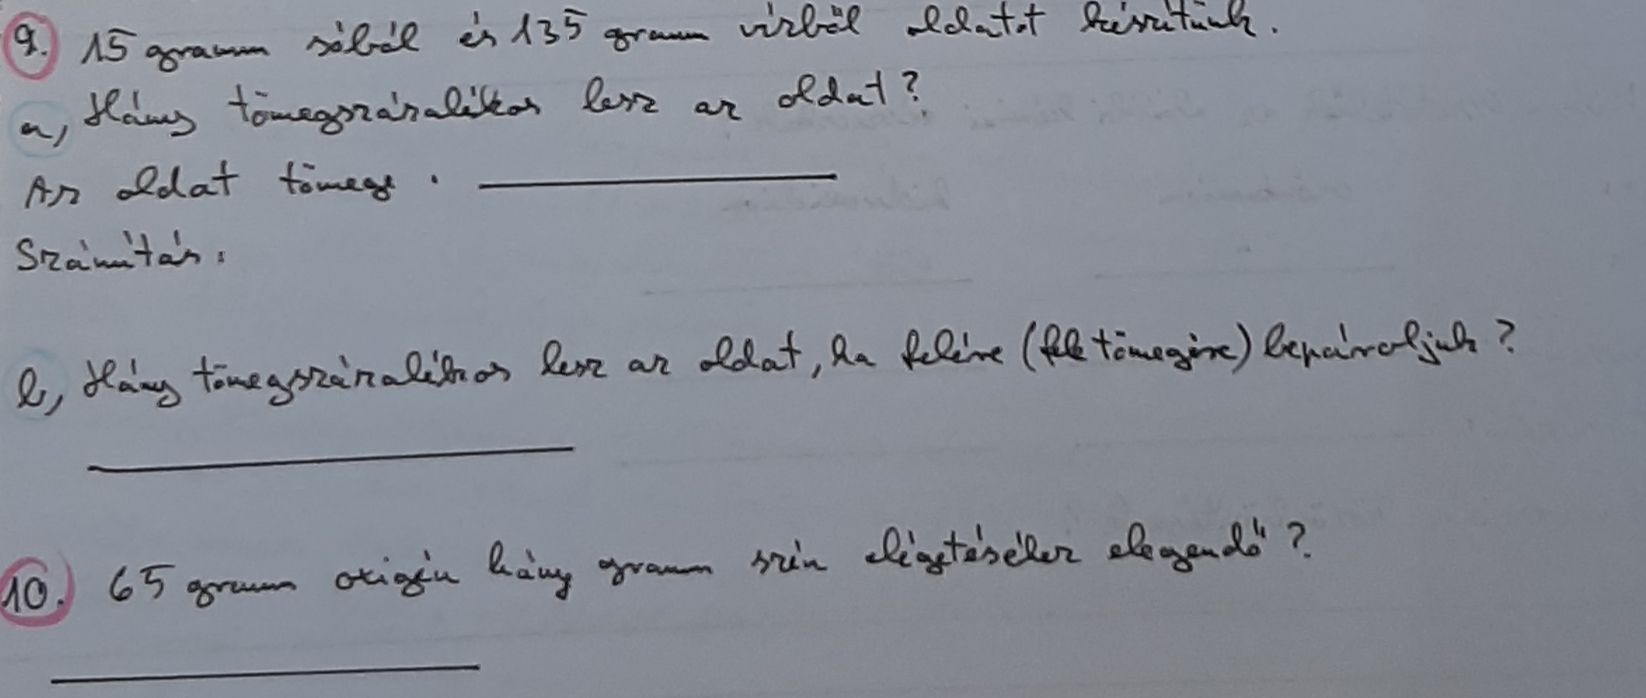 9. 15 gramm sóból és 135 gramm vízből oldatot készítünk.
a, Hány tömegszázalékos lesz az oldat?
Az oldat tömege:
Számítás:
b, Hány tömegszázalékos lesz az oldat, ha felére (fele tömegére) bepároljuk?
10. 65 gramm oxigén hány gramm szén elégetéséhez elegendő?